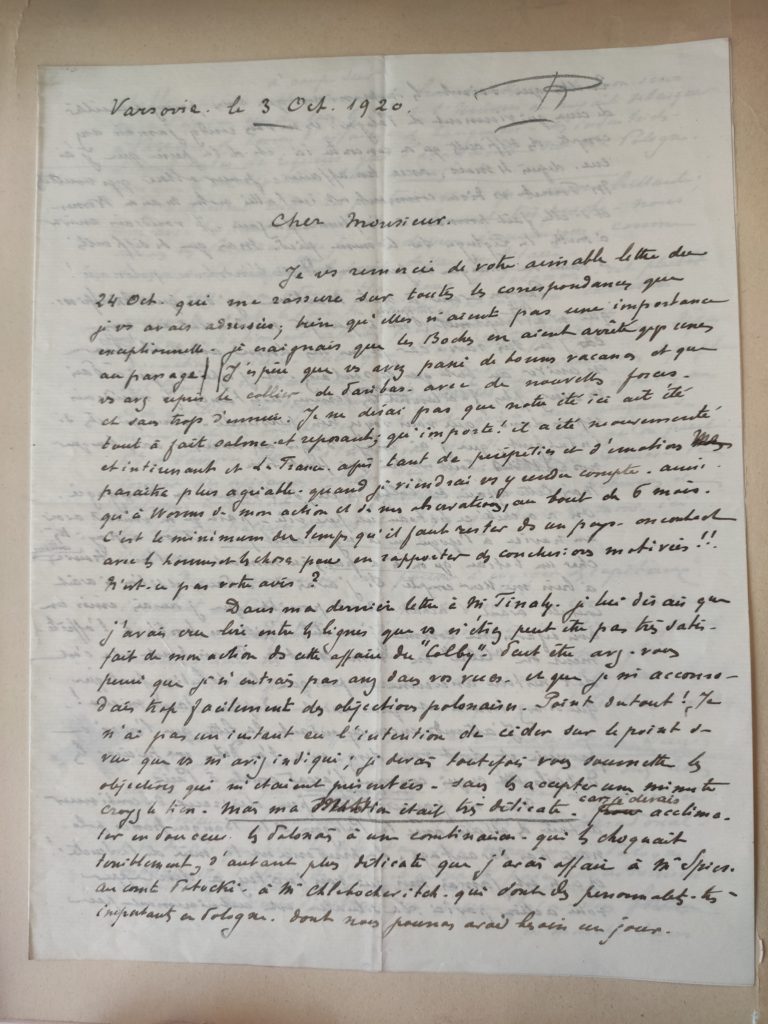 Varsovie. le 3 Oct. 1920.
Cher Monsieur.
Je vs remercie de votre aimable lettre du
24 Oct. qui me rassure sur toutes les correspondances que
je vs avais adressées; bien qu'elles n'aient pas une importance
exceptionnelle. je craignais que les Boches en aient arrêté qqs unes
au passage. J'espère que vs avez passé de bonnes vacances et que
vs avez repris le collier de Paribas. avec de nouvelles forces.
et sans trop d'ennui. Je ne dirai pas que notre été ici ait été
tout à fait calme et reposant; qu'importe! il a été mouvementé
et intéressant et la France. après tant de péripéties et d'émotions
paraîtra plus agréable. quand je viendrai vs y rendre compte. ainsi
qu'à Worms de mon action et de mes observations, au bout de 6 mois.
C'est le minimum du temps qu'il faut rester ds un pays. en contact
avec les hommes et les choses pour en rapporter des conclusions motivées!!
N'est-ce pas votre avis?
Dans ma dernière lettre à Mr Finaly. je lui disais que
j'avais cru lire entre les lignes que vs n'étiez peut être pas très satis-
fait de mon action ds cette affaire du "Colby". Peut être avez-vous
pensé que je n'entrais pas assez dans vos vues. et que je m'accommo-
dais trop facilement des objections polonaises. Point du tout! Je
n'ai pas un instant eu l'intention de céder sur le point de
vue que vs m'aviez indiqué; je devais toutefois vous soumettre les
objections qui m'étaient présentées. sans les accepter une minute
croyez le bien. Mais ma était très délicate. car je devais acclima-
ter en douceur. les Polonais à une combinaison. qui les choquait
terriblement, d'autant plus délicate que j'avais affaire à Mr Spiess.
au comte Potocki. à Mr Chlebocheritch. qui sont des personnalités très
importantes en Pologne. dont nous pourrons avoir besoin un jour.